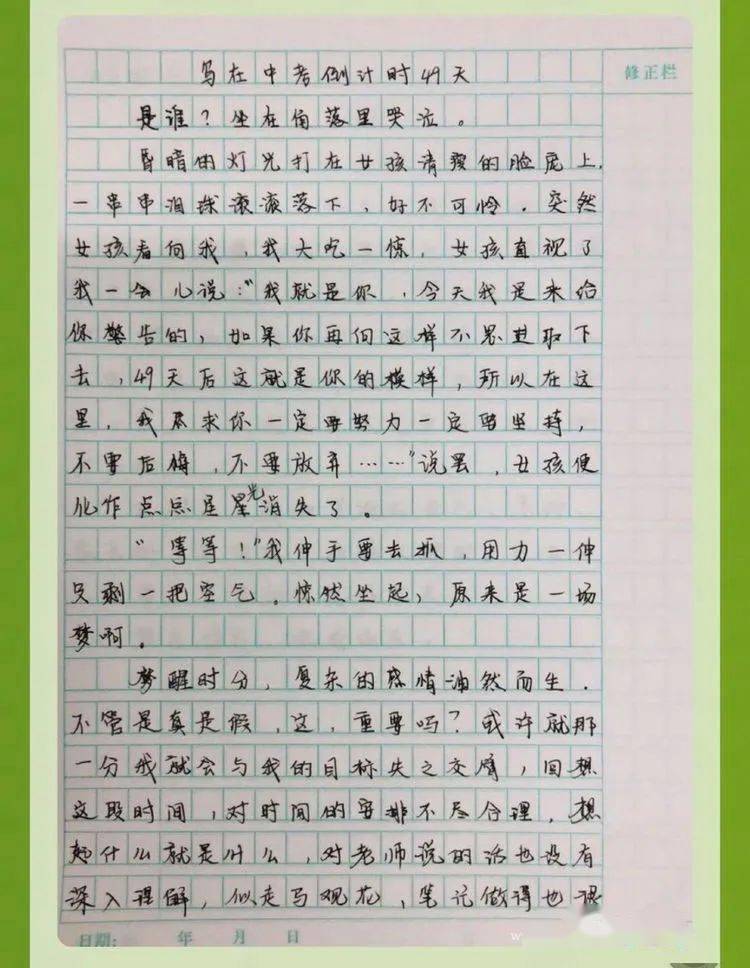 写在中考倒计时49天
修正栏
是谁？坐在角落里哭泣。
昏暗的灯光打在女孩清瘦的脸庞上，
一串串泪珠滚滚落下，好不可怜。突然
女孩看向我，我大吃一惊，女孩直视了
我一会儿说："我就是你，今天我是来给
你警告的，如果你再何这样不思进取下
去，49天后这就是你的模样，所以在这
里，我恳求你一定要努力一定要坚持，
不要后悔，不要放弃……"说罢，女孩便
化作点点星星光消失了。
"等等！"我伸手要去抓，用力一伸
只剩一把空气。惊然坐起，原来是一场
梦啊。
梦醒时分，复杂的感情油然而生。
不管是真是假，这，重要吗？或许就那
一分我就会与我的目标失之交臂，回想
这段时间，对时间的安排不尽合理，想
起什么就是什么，对老师说的话也没有
深入理解，似走马观花，笔记做得也很
日期： 年 月 日